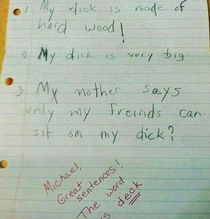 1. My dick is made of
hard wood!
2. My dick is very big
3. My mother says
only my freinds can
sit on my dick?
Michael,
Great
sentences!
The word
is deck